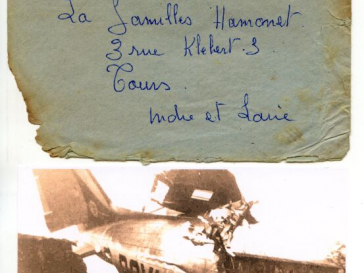 La famille Hamonet
3 rue Klébert. 3.
Tours.
Indre et Loire